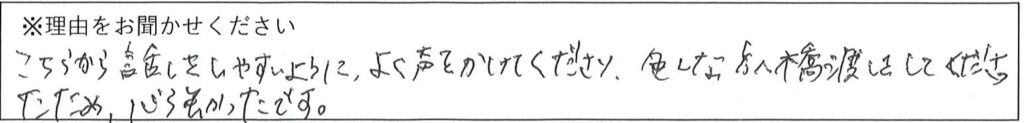 ※理由をお聞かせください
こちらから話しをしやすいように、よく声をかけてくださり、色んな方へ橋渡しをしてくださっ
たため、心強かったです。